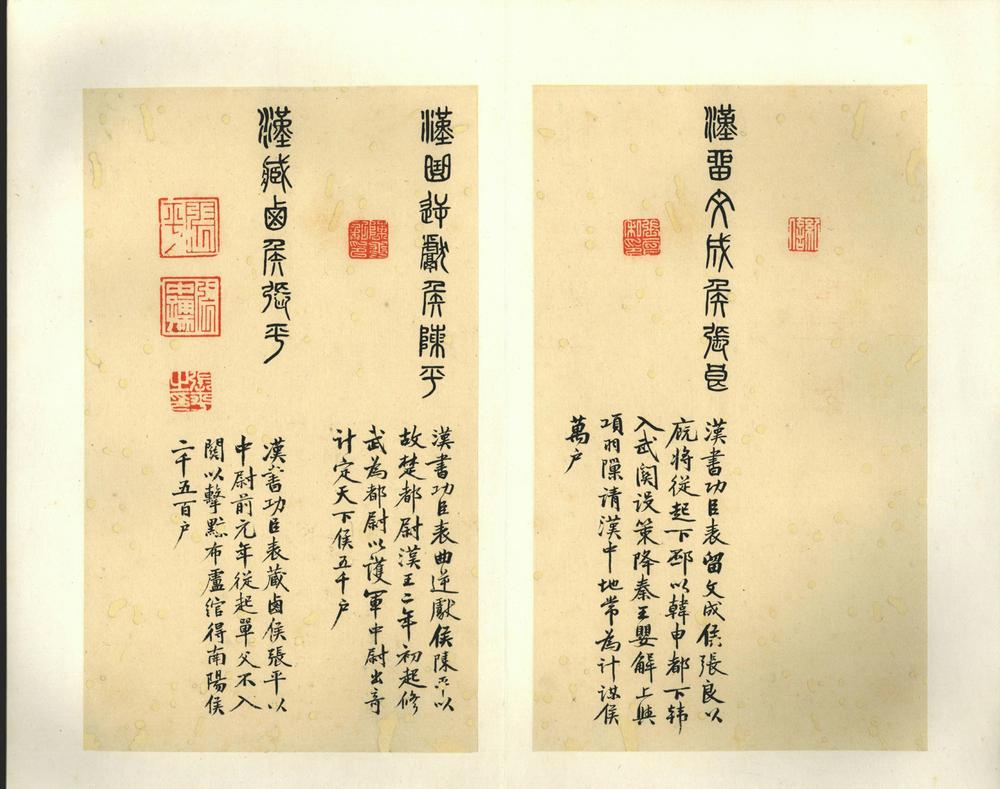 漢留文成侯張良
漢書功臣表留文成侯張良以
廄將從起下邳以韓申都下韩
入武関设策降秦王嬰解上與
項羽隟請漢中地常為計謀侯
萬户
漢曲逆獻侯陳平
漢書功臣表曲逆獻侯陳平以
故楚都尉漢王二年初起修
武為都尉以護軍中尉出奇
计定天下侯五千户
漢藏鹵侯張平
張平
漢書功臣表蔵鹵侯張平以
中尉前元年從起單父不入
関以擊黥布盧綰得南陽侯
二千五百户